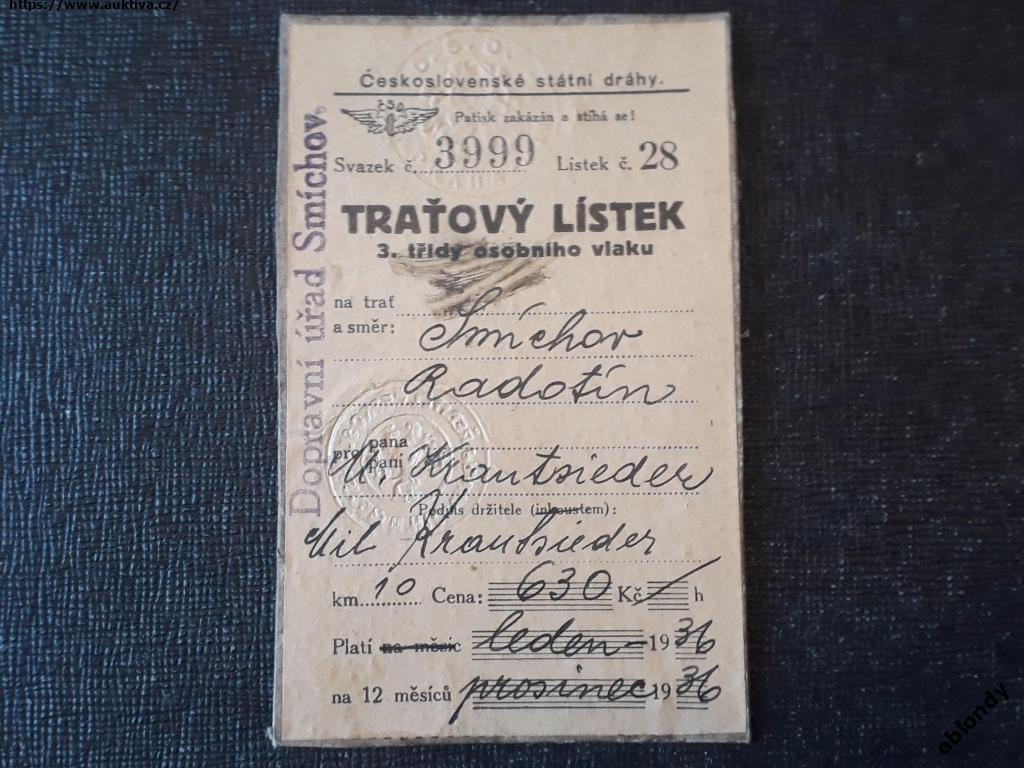 https://www.auktiva.cz/
Č.S.D.
Československé státní dráhy.
ČSD
Patisk zakázán a stíhá se!
Svazek č. 3999 Lístek č. 28
TRAŤOVÝ LÍSTEK
3. třídy osobního vlaku
na trať
a směr: Smíchov
Radotín
pro pana
paní M. Krautsieder
Podpis držitele (inkoustem):
Mil Krautsieder
km 10 Cena: 630 Kč h
Platí na měsíc leden - 1936
na 12 měsíců prosinec 1936
Dopravní úřad Smíchov.
eblondy